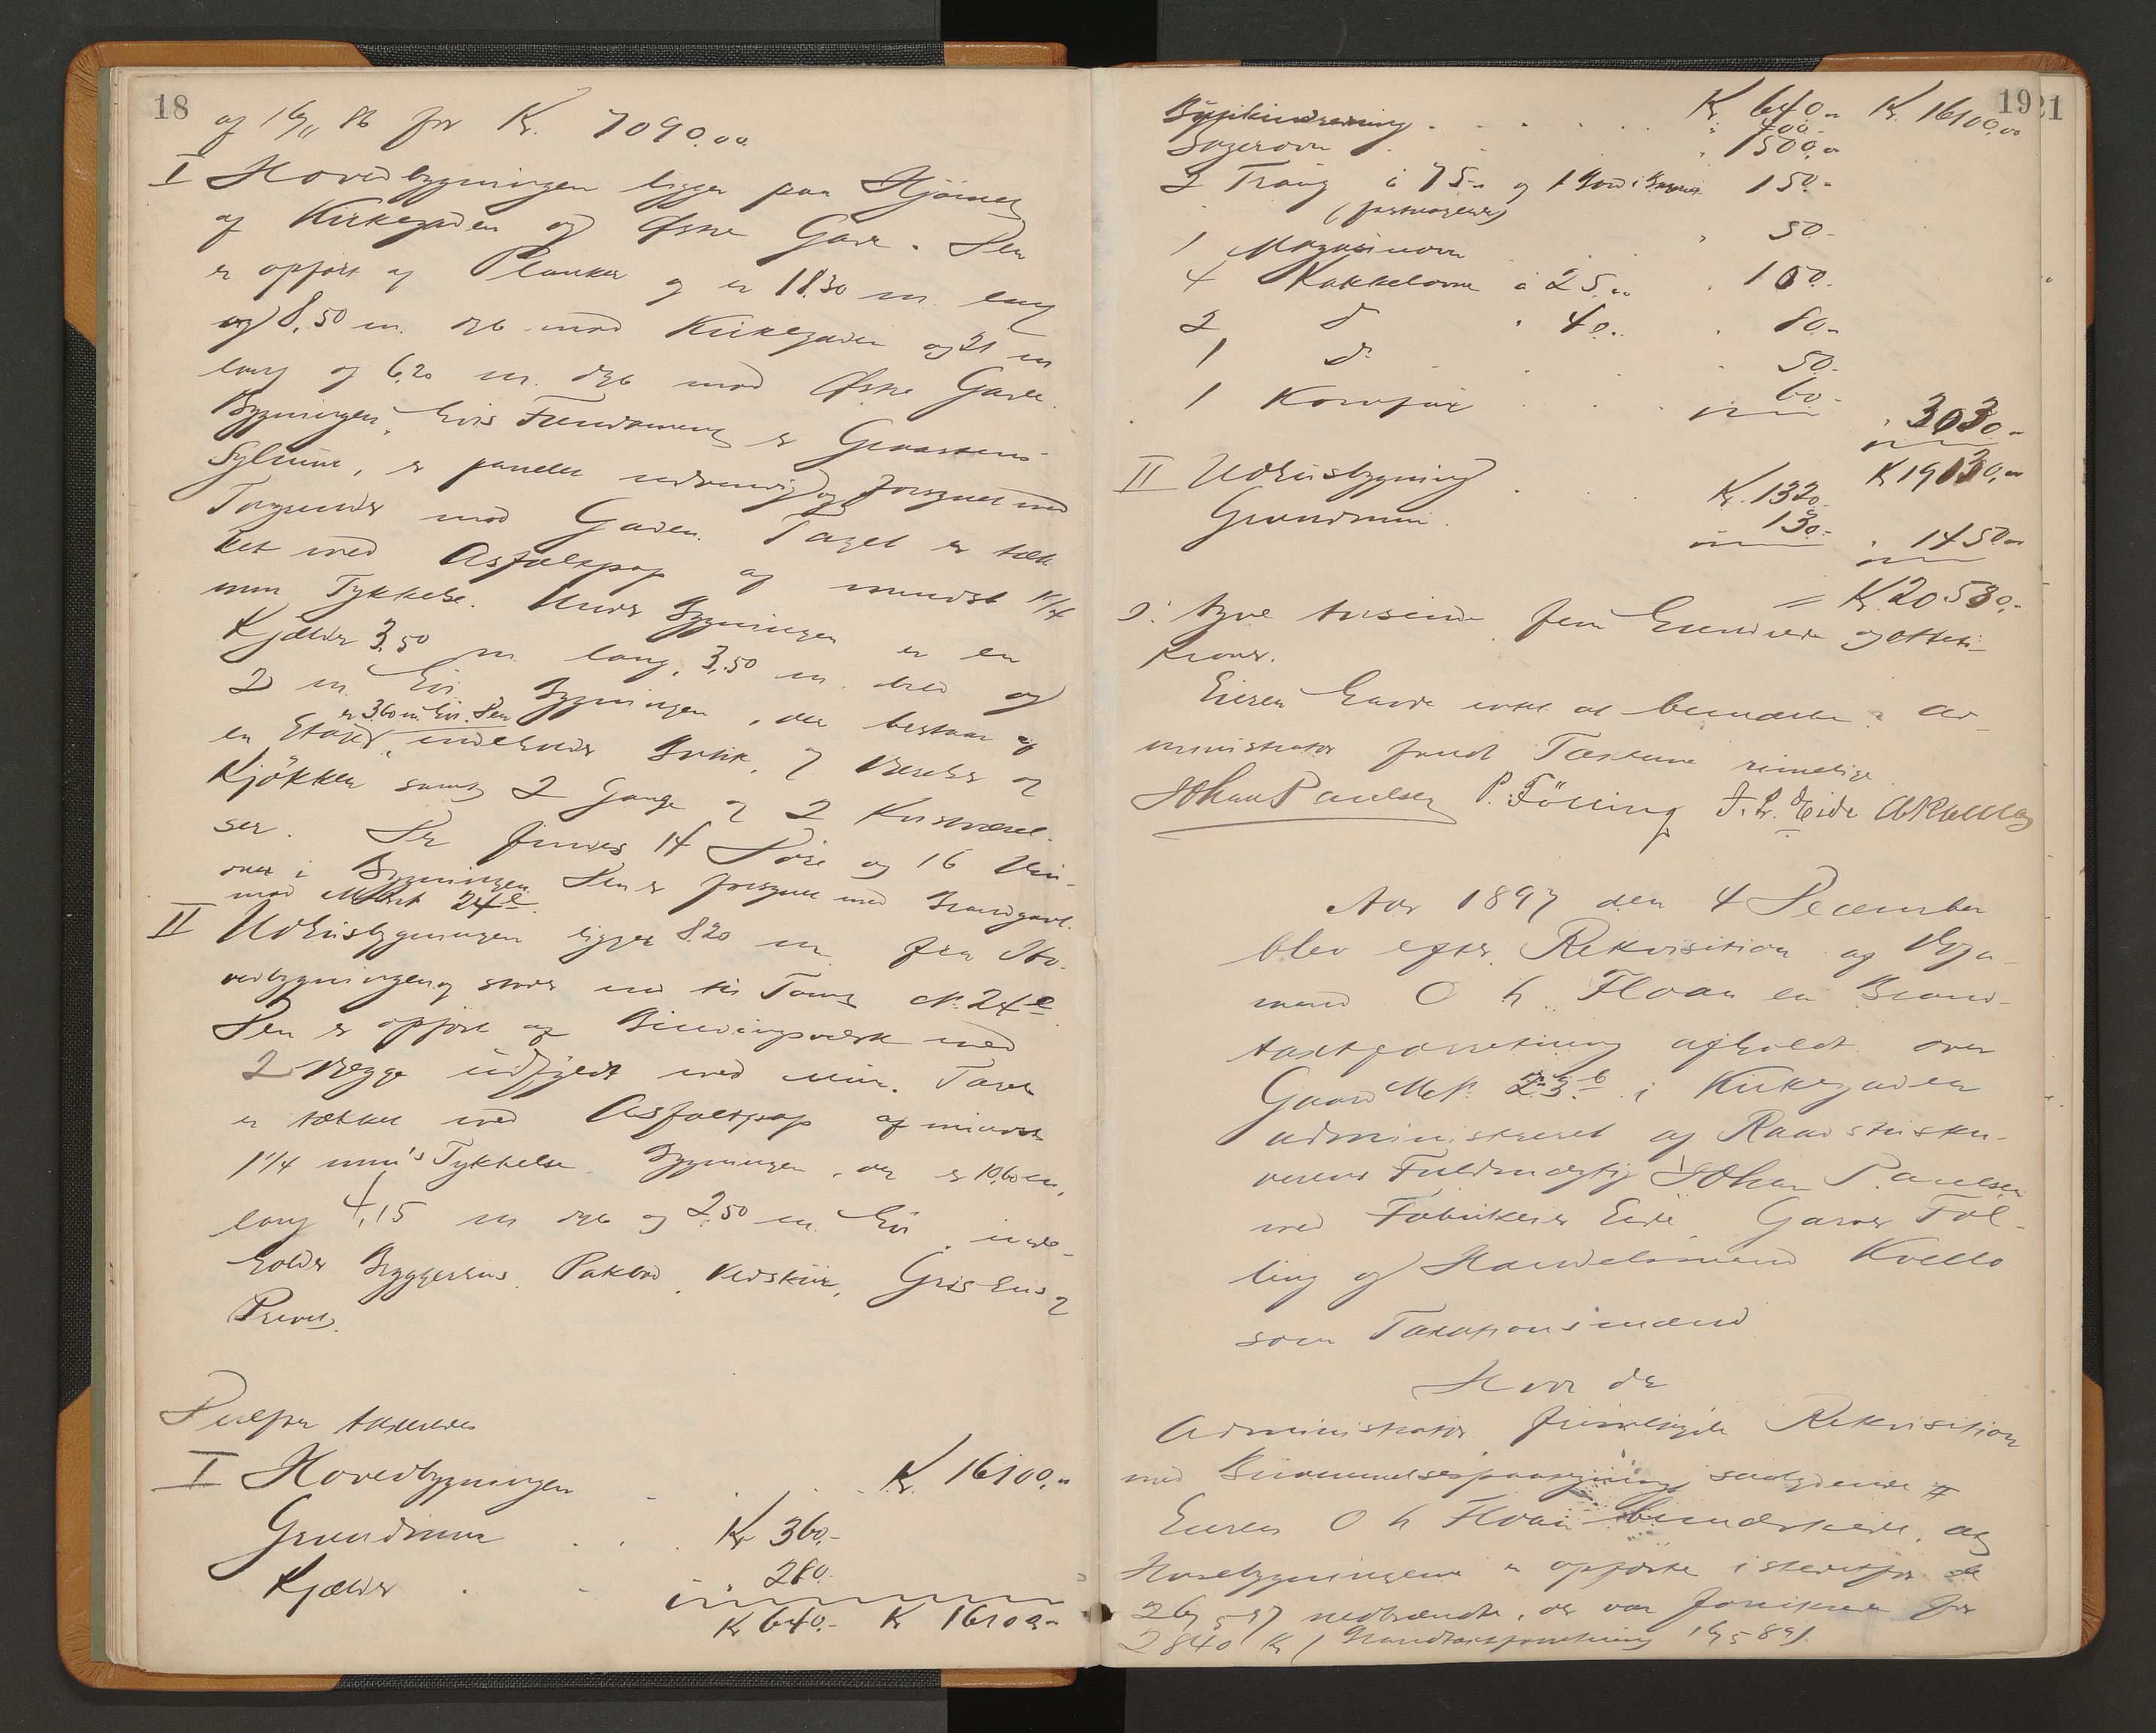 18
af 16/11 86 for Kr. 7090.00.
I Hovedbygningen ligger paa Hjørnet
af Kirkegaden og Østre Gade. Den
er opført af Planker og er 18.30 m. lang
og 8,50 m. dyb mod Kirkegaden og 21 m
lang og 6,20 m. dyb mod Østre Gade.
Bygningen, hvis Fundament er Graastens
Sylmur, er panelet udvendig og forsynet med
Tagrender mod Gaden. Taget er tæk
ket med Asfaltpap af mindst 1 1/4
mm Tykkelse. Under Bygningen er en
Kjælder 3,50 m. lang, 3,50 m. bred og
2 m. høi. Bygningen, der bestaar af
er 3.60 m. høi. Den
en Etage, indeholder Butik, 7 Værelser og
Kjøkken samt 2 Gange og 2 Kvistværel-
ser. Der findes 14 Døre og 16 Vin-
duer i Bygningen. Den er forsynet med Brandgavl
mod Matr 24e.
II Udhusbygningen ligger 8.20 m fra Ho-
vedbygningen og støder ind til Tomt No. 24e
Den er opført af Bindingsværk med
2 Vægge udfyldt med Mur. Taget
er tækket med Asfaltpap af mindst
1 1/4 mm's Tykkelse. Bygningen, der er 10,60 m.
lang 4,15 m dyb og 2,50 m. høi, inde-
holder Bryggerhus, Pakbod, Vedskur, Grishus &
Privet.
Derefter taxeredes
I Hovedbygningen . . . Kr. 16100,"
Grundmur . . . Kr 360,-
Kjælder . . " 280.
Kr 640,- Kr 16100,-
1921
Kr. 640.- Kr. 16100,00
" 700.-
" 1500,-
2 Traug à 75.- og 150.-
1 Magasinovn . . " 50.-
4 Kakkelovne à 25,00 . 100.-
2 do " 40.. . 80.-
1 do . . . 50.-
1 Komfur . . . 60.-
" 3030.-
Kr 19130,00
II Udhusbygning . . . Kr. 1320.
Grundmur . 130.- " 1450.00
= Kr. 20.580.-
ɔ: tyve tusinde fem hundrede og otteti
Kroner.
Eieren havde intet at bemærke. Ad-
ministrator fandt Taxterne rimelige
Johan Paulsen P. Fölling J. L. Eide
Aar 1897 den 4 December
blev efter Rekvisition af Byg-
mand O h Floan en Brand-
taxtforretning afholdt over
Gaard Mat. No. 23b i Kirkegaden
administreret af Raadstuskri-
verens Fuldmægtig Johan Paulsen
med Fabrikeier Eide Garver Föl-
ling og Handelsmand Kvello
som Taxationsmænd
Hvorda
Administrator fremlagde Rekvisition
med Berammelsespaategning saalydende #
Eieren O h Floan bemærkede, at
Husebygningerne er opførte istedetfor de
26/5 97 nedbrændte, der var forsikret for
2840 Kr (Brandtaxtforretning 16/5 89).